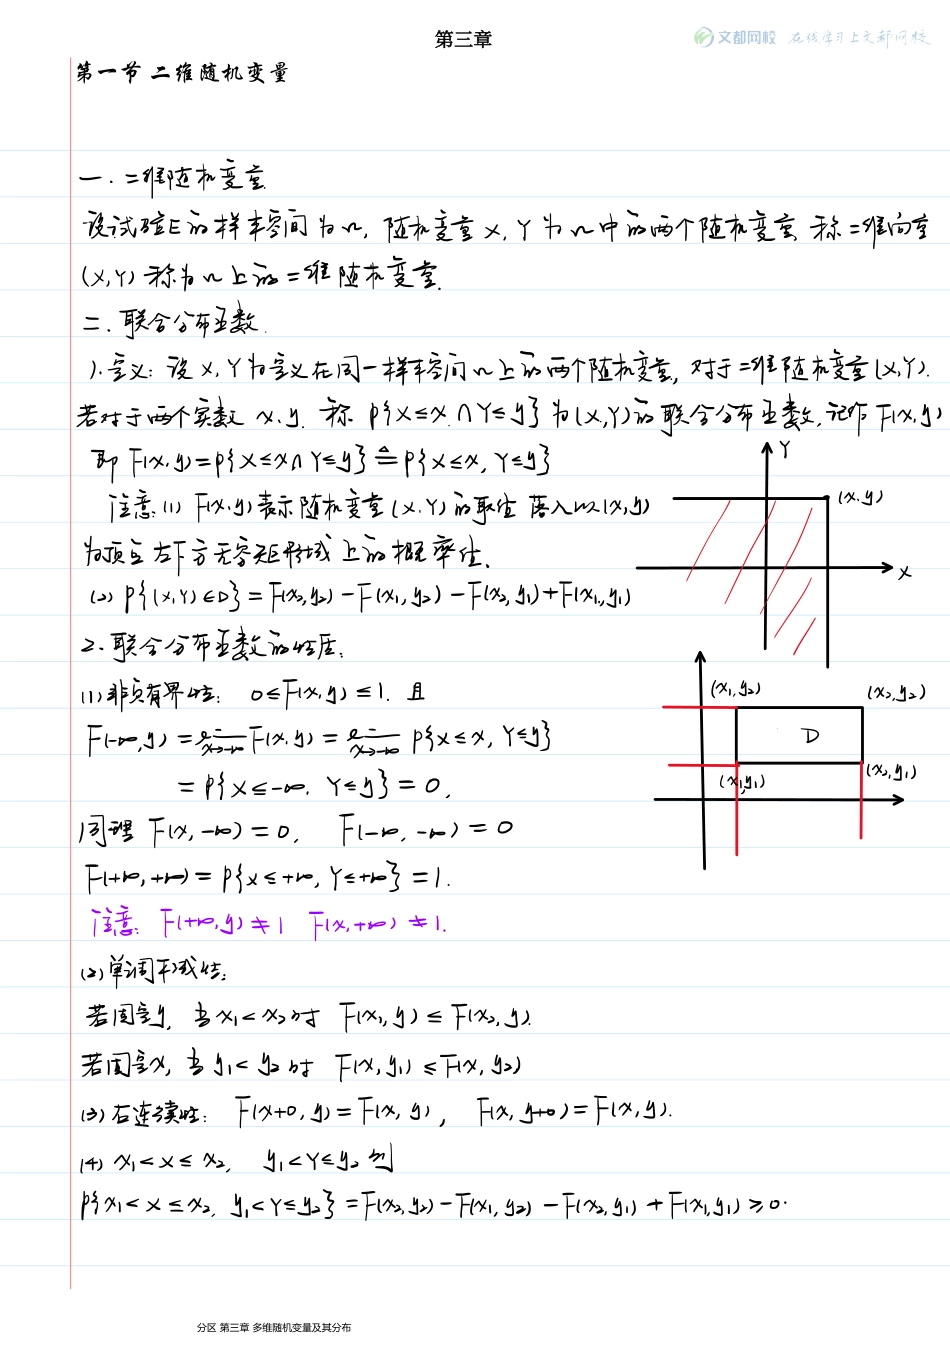 第三章
文都网校 在线学习上文都网校
第一节 二维随机变量
一. 二维随机变量
设试验E的样本空间为Ω, 随机变量X, Y为Ω中的两个随机变量, 称二维向量
(X,Y)称为Ω上的二维随机变量.
二. 联合分布函数.
1. 定义: 设X, Y为定义在同一样本空间Ω上的两个随机变量, 对于二维随机变量(X,Y).
若对于两个实数x,y. 称 P{X≤x ∩ Y≤y} 为(X,Y)的联合分布函数, 记作F(x,y)
即 F(x,y)=P{X≤x ∩ Y≤y} ≜ P{X≤x, Y≤y}
Y
(x,y)
X
注意:(1) F(x,y)表示随机变量(X,Y)的取值落入以(x,y)
为顶点左下方无穷矩形域上的概率值.
(2) P{(X,Y)∈D} = F(x₂,y₂) − F(x₁,y₂) − F(x₂,y₁) + F(x₁,y₁)
2. 联合分布函数的性质:
(x₁,y₂) (x₂,y₂)
D
(x₁,y₁) (x₂,y₁)
(1) 非负有界性: 0≤F(x,y)≤1. 且
F(-∞,y) = lim x→-∞ F(x,y) = lim x→-∞ P{X≤x, Y≤y}
= P{X≤-∞, Y≤y} = 0,
同理 F(x,-∞) = 0, F(-∞,-∞) = 0
F(+∞,+∞) = P{X≤+∞, Y≤+∞} = 1.
注意: F(+∞,y) ≠ 1 F(x,+∞) ≠ 1.
(2) 单调不减性:
若固定y, 当x₁<x₂时 F(x₁,y) ≤ F(x₂,y).
若固定x, 当y₁<y₂时 F(x,y₁) ≤ F(x,y₂)
(3) 右连续性: F(x+0,y) = F(x,y), F(x,y+0) = F(x,y).
(4) x₁<X≤x₂, y₁<Y≤y₂ 则
P{x₁<X≤x₂, y₁<Y≤y₂} = F(x₂,y₂) − F(x₁,y₂) − F(x₂,y₁) + F(x₁,y₁) ≥ 0.
分区 第三章 多维随机变量及其分布